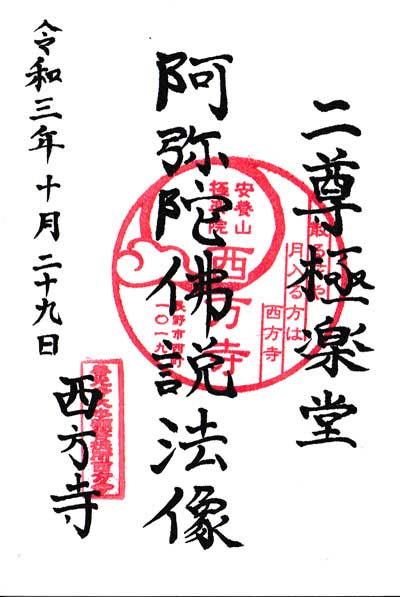 二尊極楽堂
阿弥陀佛説法像
令和三年十月二十九日
西方寺
安養山
極楽院
西方寺
長野市西町
一〇一九
月入る方は
西方寺